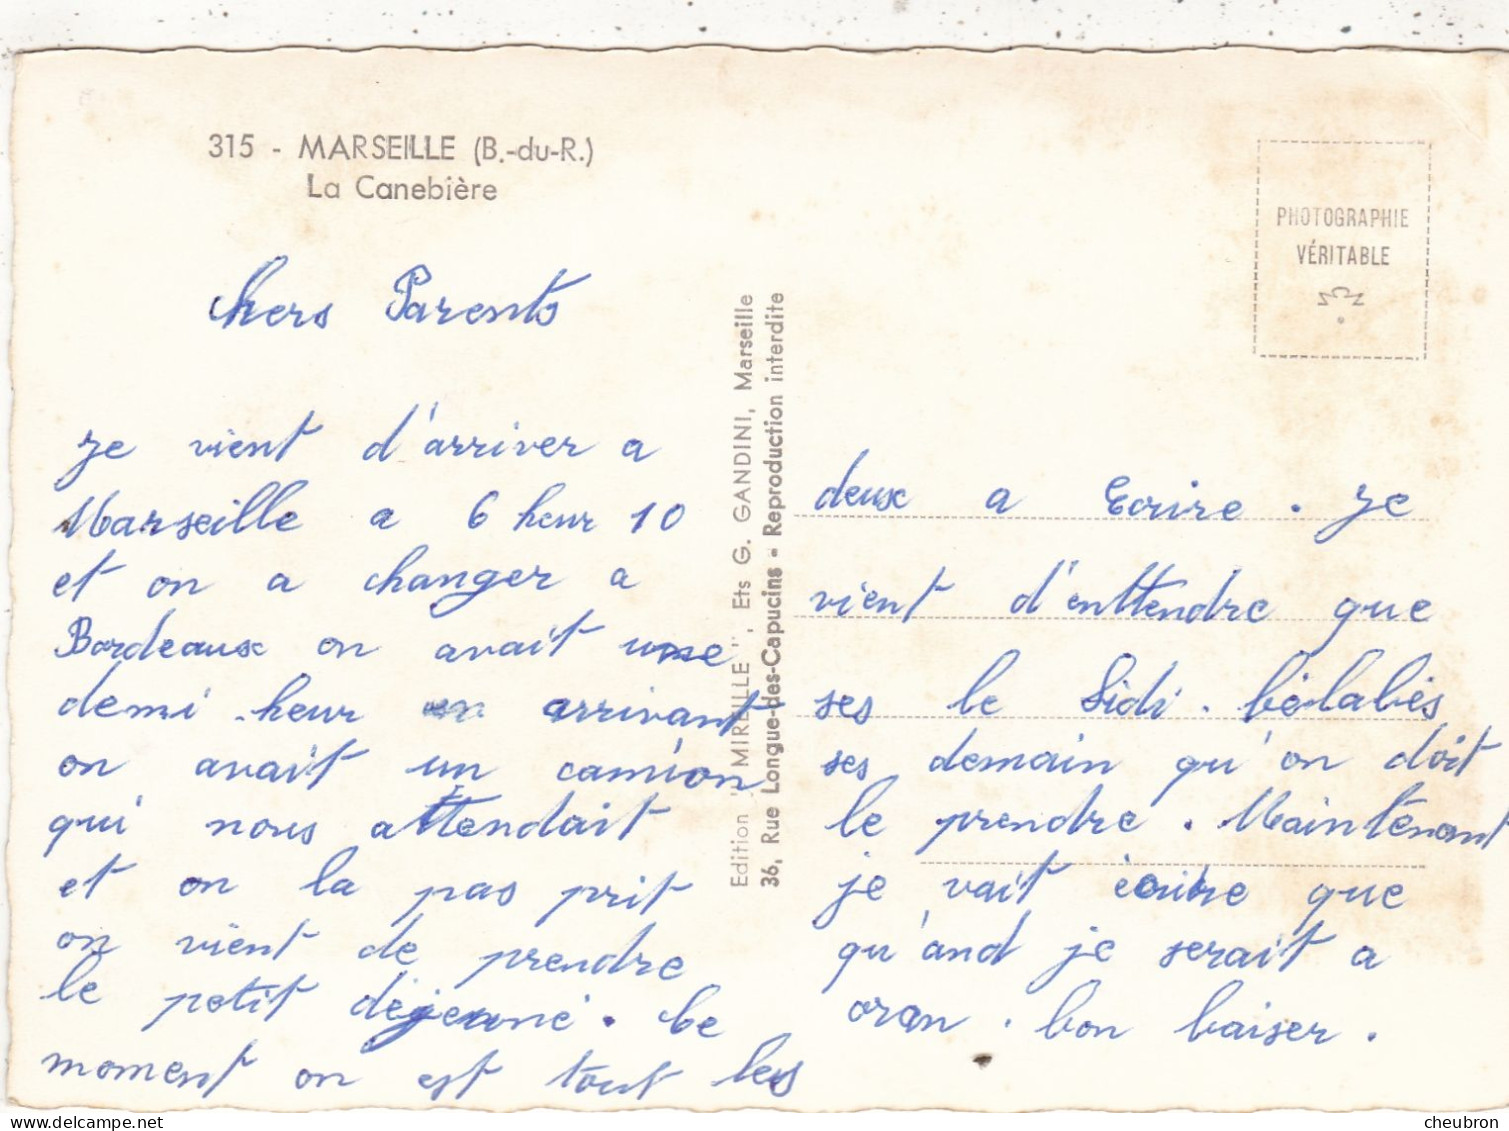 315 - MARSEILLE (B.-du-R.)
La Canebière
PHOTOGRAPHIE
VÉRITABLE
chers Parents
je vient d'arriver a
Marseille a 6 heur 10
et on a changer a
Bordeaux on avait une
demi heur en arrivant
on avait un camion
qui nous attendait
et on la pas prit
on vient de prendre
le petit déjeuné. Le
moment on est tout les
Edition "MIREILLE", Ets G. GANDINI, Marseille
36, Rue Longue-des-Capucins - Reproduction interdite
deux a Ecrire. je
vient d'enttendre que
ses le Sidi. bélabés
ses demain qu'on doit
le prendre. Maintenant
je vait écrire que
qu'and je serait a
oran. bon baiser.
cheubron